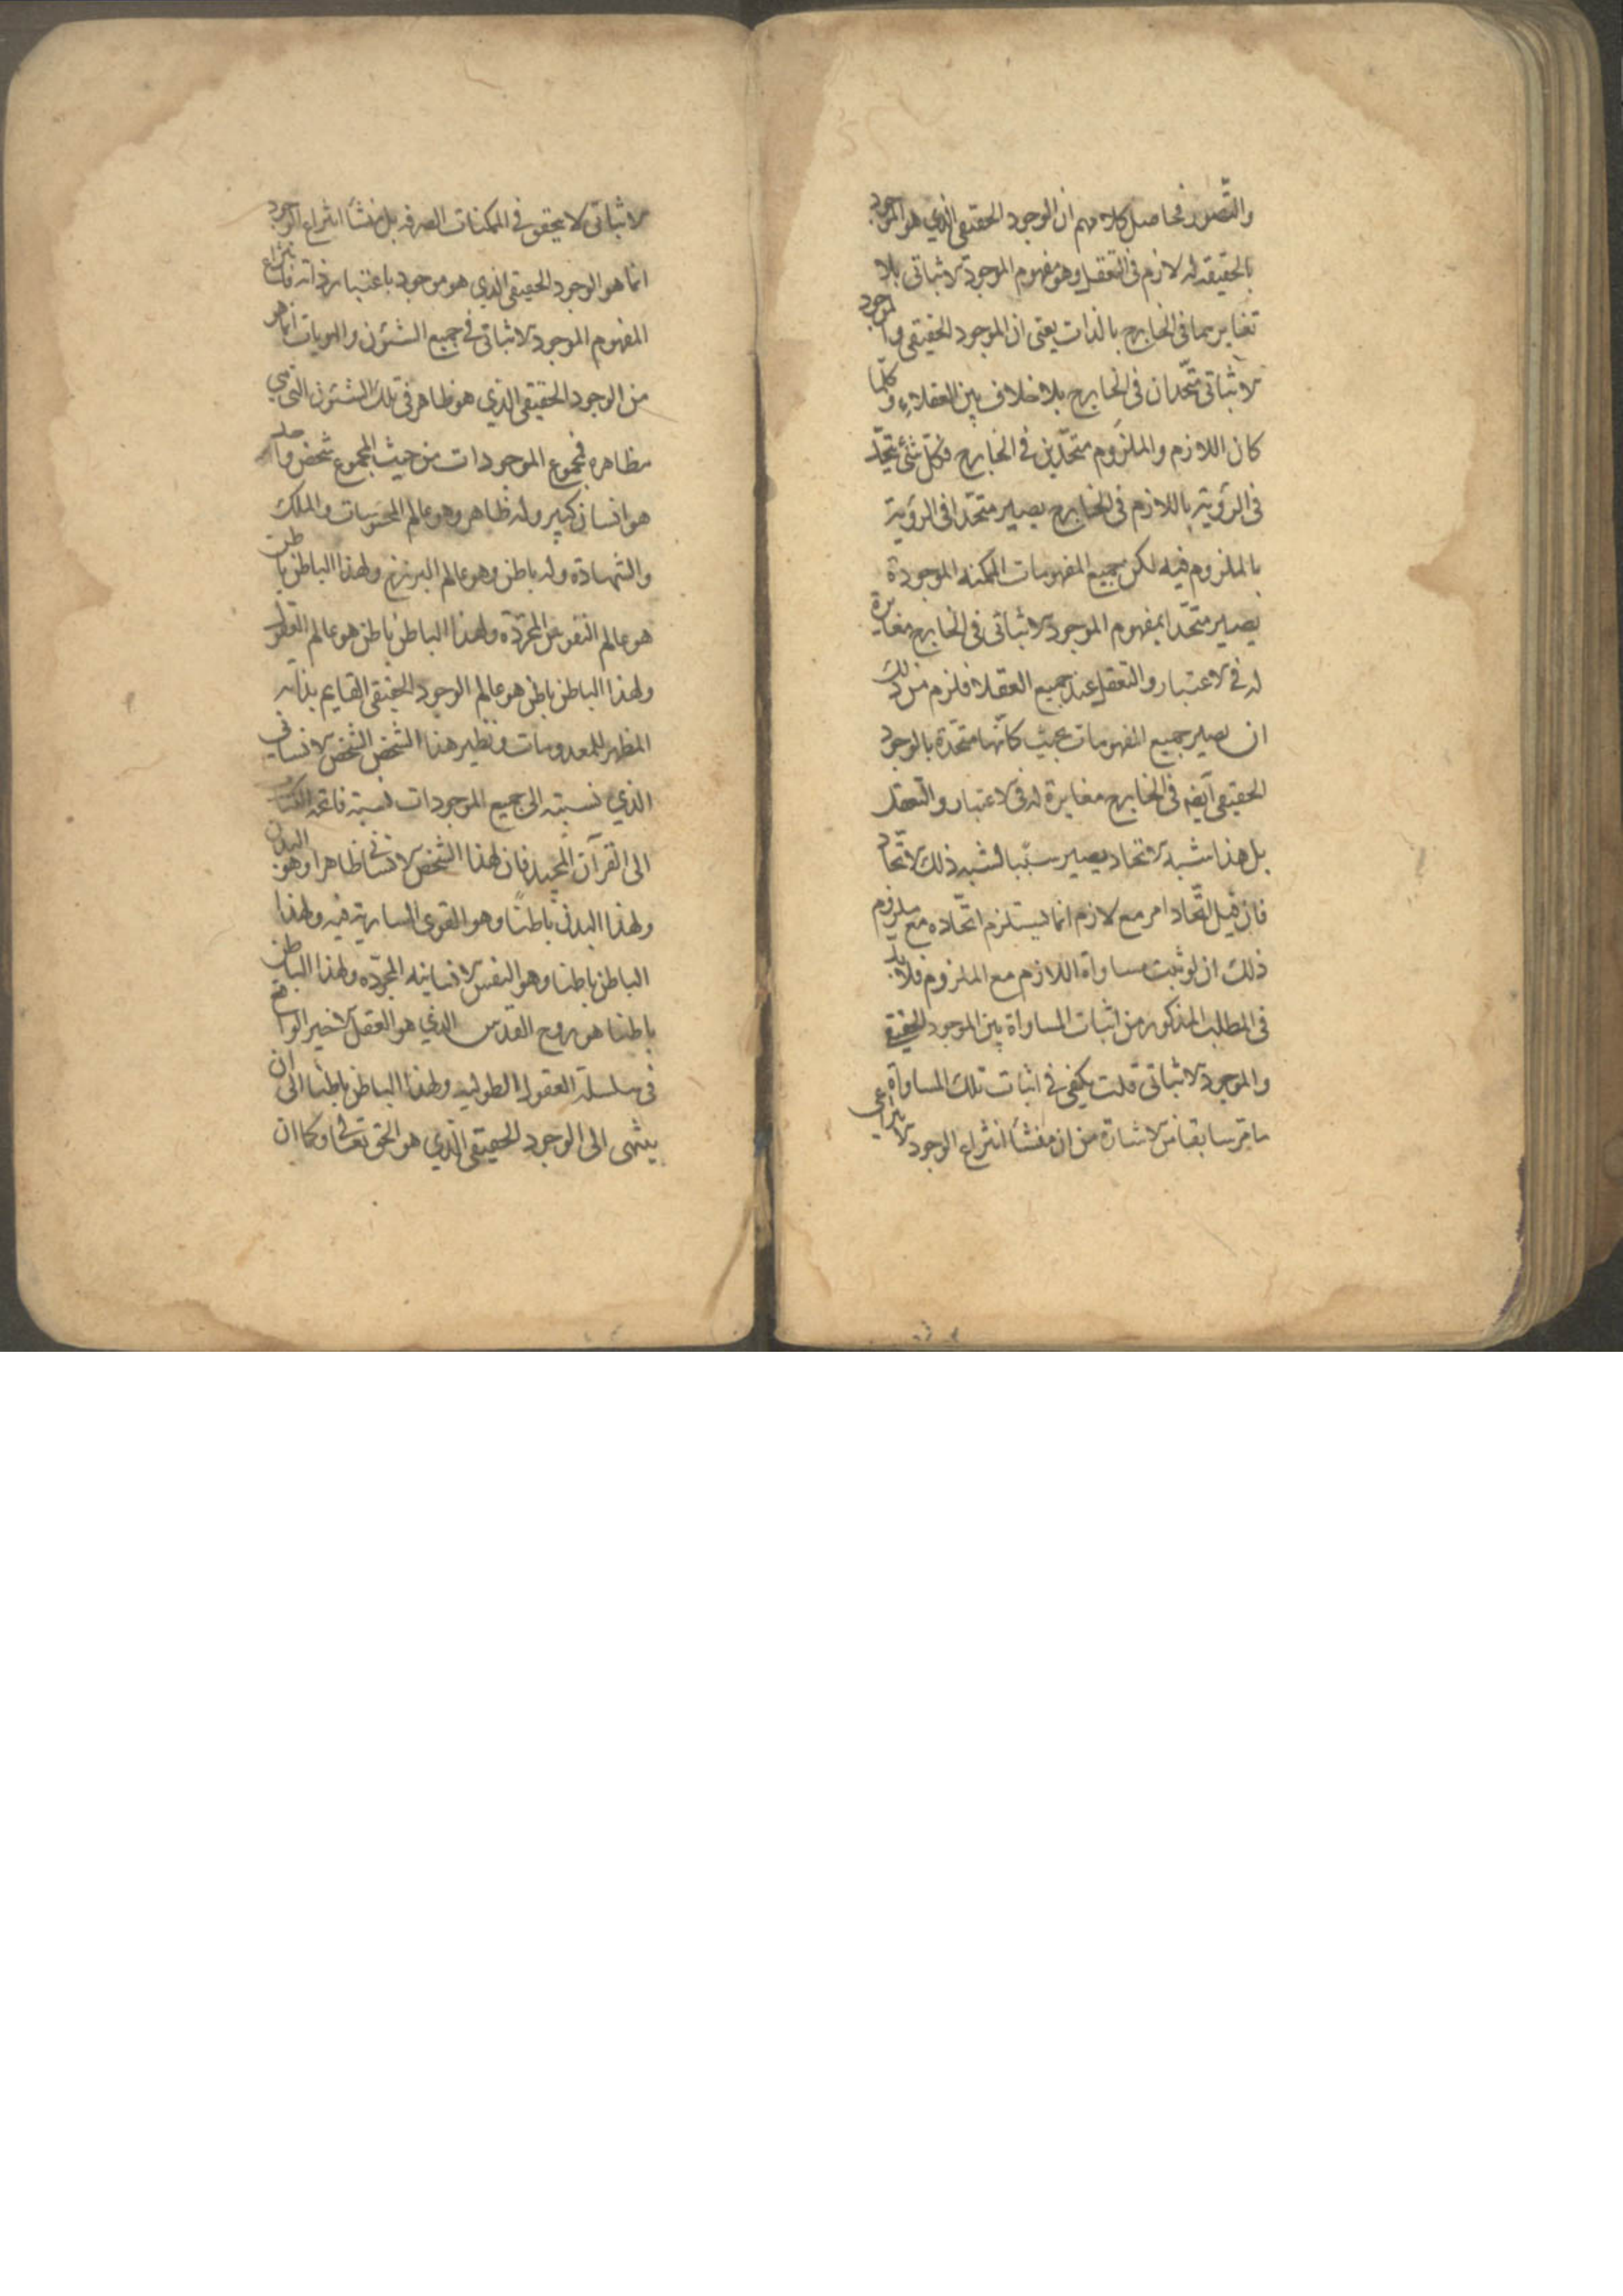 والتصور فحاصل كلامهم ان الوجود الحقيقى الذي هو الموجود
بالحقيقه له لازم فى التعقل وهو مفهوم الموجود الاثباتى بلا
تغايرهما فى الخارج بالذات يعنى ان الموجود الحقيقى والموجود
الاثباتى متّحدان فى الخارج بلا خلاف بين العقلاء وكلّما
كان اللازم والملزوم متحّدين فى الخارج فكلّ شئ يتحّد
فى الرؤية باللازم فى الخارج يصير متحّدا فى الرؤية
بالملزوم فيه لكن جميع المفهومات الممكنه الموجودة
يصير متحّدا بمفهوم الموجود الاثباتى فى الخارج مغايرة
له فى الاعتبار والتعقل عند جميع العقلا فلزم من ذلك
ان يصير جميع المفهومات بحيث كانّها متحّدة بالوجود
الحقيقى ايضه فى الخارج مغايرة له فى الاعتبار والتعقل
بل هذا شبه الاتحاد يصير سببا لشبه ذلك الاتّحاد
فان قيل اتّحاد امر مع لازم انما يستلزم اتّحاده مع ملزوم
ذلك ان لو ثبت مساواة اللازم مع الملزوم فلا بد
فى المطلب المذكور من اثبات المساواة بين الموجود الحقيقى
والموجود الاثباتى قلت يكفى فى اثبات تلك المساواة
ما مرّ سابقا من الاشارة من ان منشأ انتزاع الوجود الانتزاعى
الاثباتى لا يتحقق فى الممكنات الصرفه بل منشأ انتزاع الوجود
انما هو الوجود الحقيقى الذي هو موجود باعتبار ذاته فانتزاع
المفهوم الموجود الاثباتى فى جميع الشئون والهويات انما هو
من الوجود الحقيقى الذي هو ظاهر فى تلك الشئون التى هى
مظاهره فمجموع الموجودات من حيث المجموع شخص واحد
هو انسان كبير وله ظاهر وهو عالم المحسوسات والملك
والشهادة وله باطن وهو عالم البرزخ ولهذا الباطن باطن
هو عالم النفوس المجرّده ولهذا الباطن باطن هو عالم العقول
ولهذا الباطن باطن هو عالم الوجود الحقيقى القايم بذاته
المظهر للمعدومات ونظير هذا الشخص الشخص الانسانى
الذي نسبته الى جميع الموجودات نسبة فاتحة الكتاب
الى القرآن المجيد فان لهذا الشخص الانسانى ظاهرا وهو البدن
ولهذا البدن باطنًا وهو القوى السارية فيه ولهذا
الباطن باطنا وهو النفس الانسانيه المجرّده ولهذا الباطن
باطنا هو روح القدس الذي هو العقل الاخير الواقع
فى سلسلة العقول الطوليه ولهذا الباطن باطنا الى ان
ينتهى الى الوجود الحقيقى الذي هو الحق تعالى وكما ان